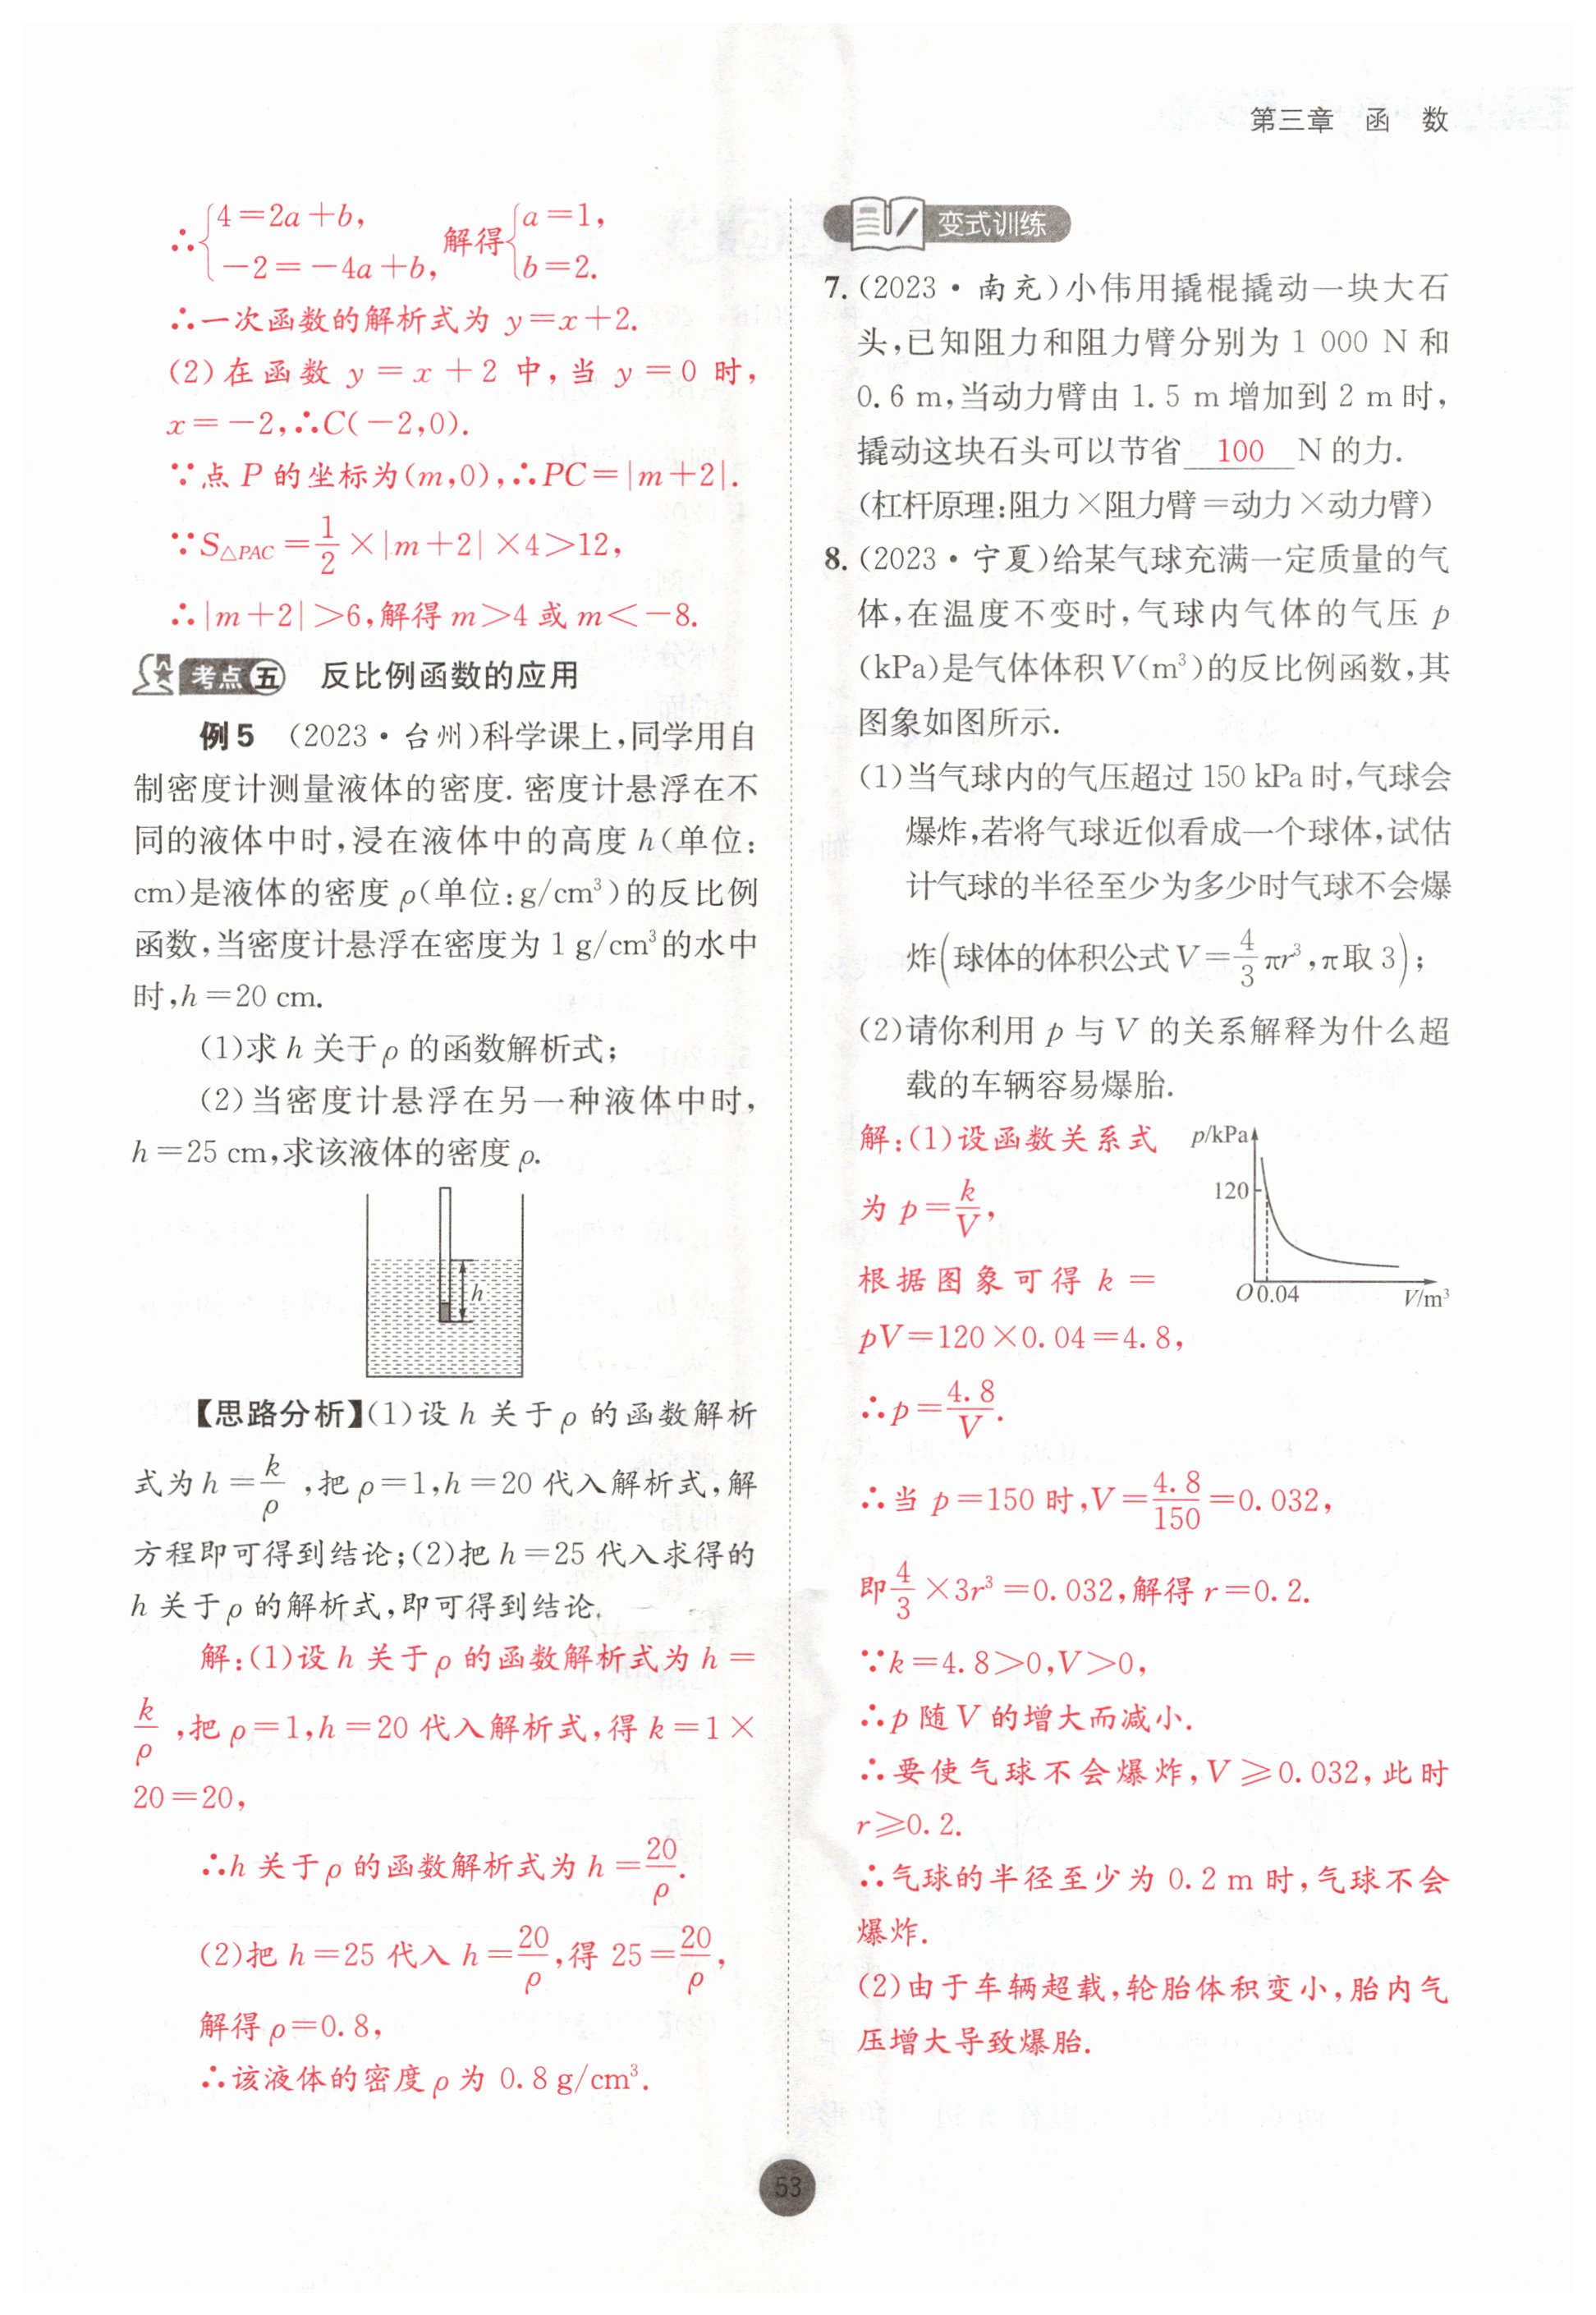 第三章 函 数
∴{4=2a+b, -2=-4a+b, 解得{a=1, b=2.
∴一次函数的解析式为 y=x+2.
(2)在函数 y=x+2 中,当 y=0 时,
x=-2,∴C(-2,0).
∵点 P 的坐标为(m,0),∴PC=|m+2|.
∵S△PAC=1/2×|m+2|×4>12,
∴|m+2|>6,解得 m>4 或 m<-8.
考点五 反比例函数的应用
例5 (2023·台州)科学课上,同学用自
制密度计测量液体的密度. 密度计悬浮在不
同的液体中时,浸在液体中的高度 h(单位:
cm)是液体的密度 ρ(单位:g/cm³)的反比例
函数,当密度计悬浮在密度为 1 g/cm³的水中
时,h=20 cm.
(1)求 h 关于 ρ 的函数解析式;
(2)当密度计悬浮在另一种液体中时,
h=25 cm,求该液体的密度 ρ.
h
【思路分析】(1)设 h 关于 ρ 的函数解析
式为 h=k/ρ,把 ρ=1,h=20 代入解析式,解
方程即可得到结论;(2)把 h=25 代入求得的
h 关于 ρ 的解析式,即可得到结论.
解:(1)设 h 关于 ρ 的函数解析式为 h=
k/ρ,把 ρ=1,h=20 代入解析式,得 k=1×
20=20,
∴h 关于 ρ 的函数解析式为 h=20/ρ.
(2)把 h=25 代入 h=20/ρ,得 25=20/ρ,
解得 ρ=0.8,
∴该液体的密度 ρ 为 0.8 g/cm³.
变式训练
7.(2023·南充)小伟用撬棍撬动一块大石
头,已知阻力和阻力臂分别为 1 000 N 和
0.6 m,当动力臂由 1.5 m 增加到 2 m 时,
撬动这块石头可以节省 100 N 的力.
(杠杆原理:阻力×阻力臂=动力×动力臂)
8.(2023·宁夏)给某气球充满一定质量的气
体,在温度不变时,气球内气体的气压 p
(kPa)是气体体积 V(m³)的反比例函数,其
图象如图所示.
(1)当气球内的气压超过 150 kPa 时,气球会
爆炸,若将气球近似看成一个球体,试估
计气球的半径至少为多少时气球不会爆
炸(球体的体积公式 V=4/3πr³,π取 3);
(2)请你利用 p 与 V 的关系解释为什么超
载的车辆容易爆胎.
解:(1)设函数关系式
为 p=k/V,
根据图象可得 k=
pV=120×0.04=4.8,
p/kPa
120
O 0.04 V/m³
∴p=4.8/V.
∴当 p=150 时,V=4.8/150=0.032,
即4/3×3r³=0.032,解得 r=0.2.
∵k=4.8>0,V>0,
∴p 随 V 的增大而减小.
∴要使气球不会爆炸,V≥0.032,此时
r≥0.2.
∴气球的半径至少为 0.2 m 时,气球不会
爆炸.
(2)由于车辆超载,轮胎体积变小,胎内气
压增大导致爆胎.
53